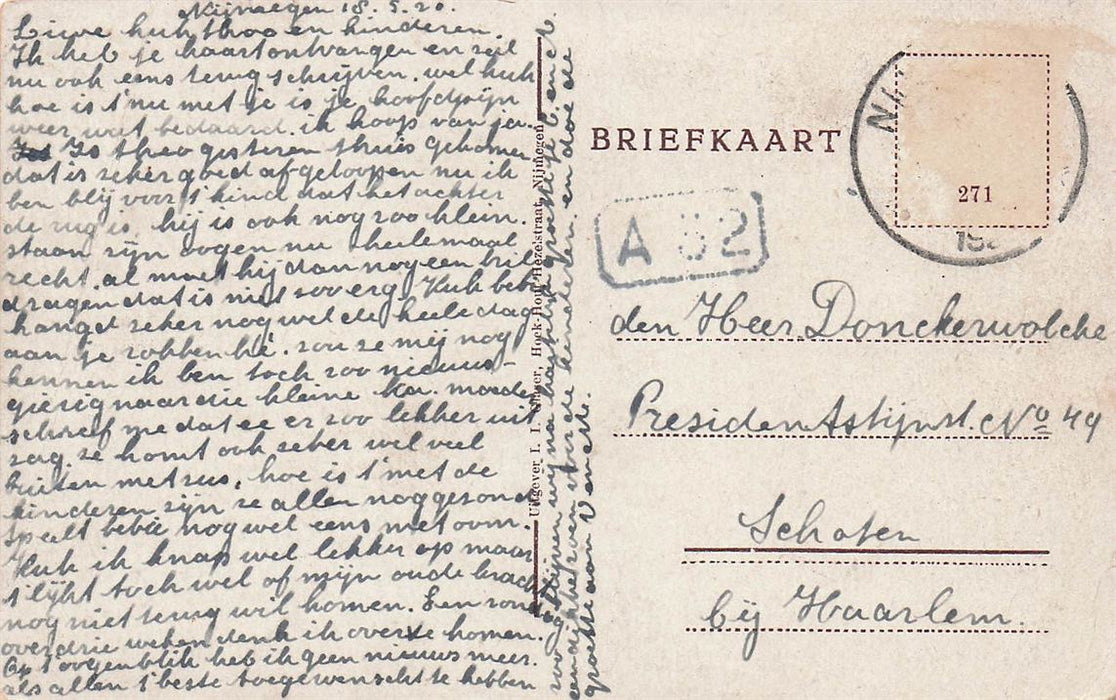 Nijmegen 18.5.20.
Lieve huh theo en kinderen.
Ik heb je kaart ontvangen en zal
nu ook eens terug schrijven. wel huh
hoe is t'nu met je is je hoofdpijn
weer wat bedaard. ik hoop van ja.
Is theo gisteren thuis gekomen
dat is zeker goed afgeloopen nu ik
ben blij voor 't kind dat het achter
de rug is, hij is ook nog zoo klein.
staan zijn oogen nu heelemaal
recht. al moet hij dan nog een bril
dragen dat is niet zoo erg. Huh bebie
hangt zeker nog wel de heele dag
aan je robben hé. zou ze mij nog
kennen ik ben toch zoo nieuws-
gierig naar die kleine Ka. moeder
schreef me dat ze er zoo lekker uit
zag. ze komt ook zeker wel veel
buiten met sus, hoe is t'met de
kinderen zijn ze allen nog gezond
speelt bebie nog wel eens met oom.
Huh ik knap wel lekker op maar
t'lijkt toch wel of mijn oude kracht
nog niet terug wil komen. Een zond
over drie weken denk ik over te komen.
Op 't oogenblik heb ik geen nieuws meer.
als allen 't beste toegewenscht te hebben
zoo blijven wij na hartelijk groetend je
een dikke zoen voor de kinderen. en doe de
groeten aan Venste.
Uitgever I. I. Hoek-Hout Hezelstraat, Nijmegen
BRIEFKAART
271
NIJ
A 82
den Heer Donckerwolcke
Presiden Astijnst. No 49
Schoten
bij Haarlem.